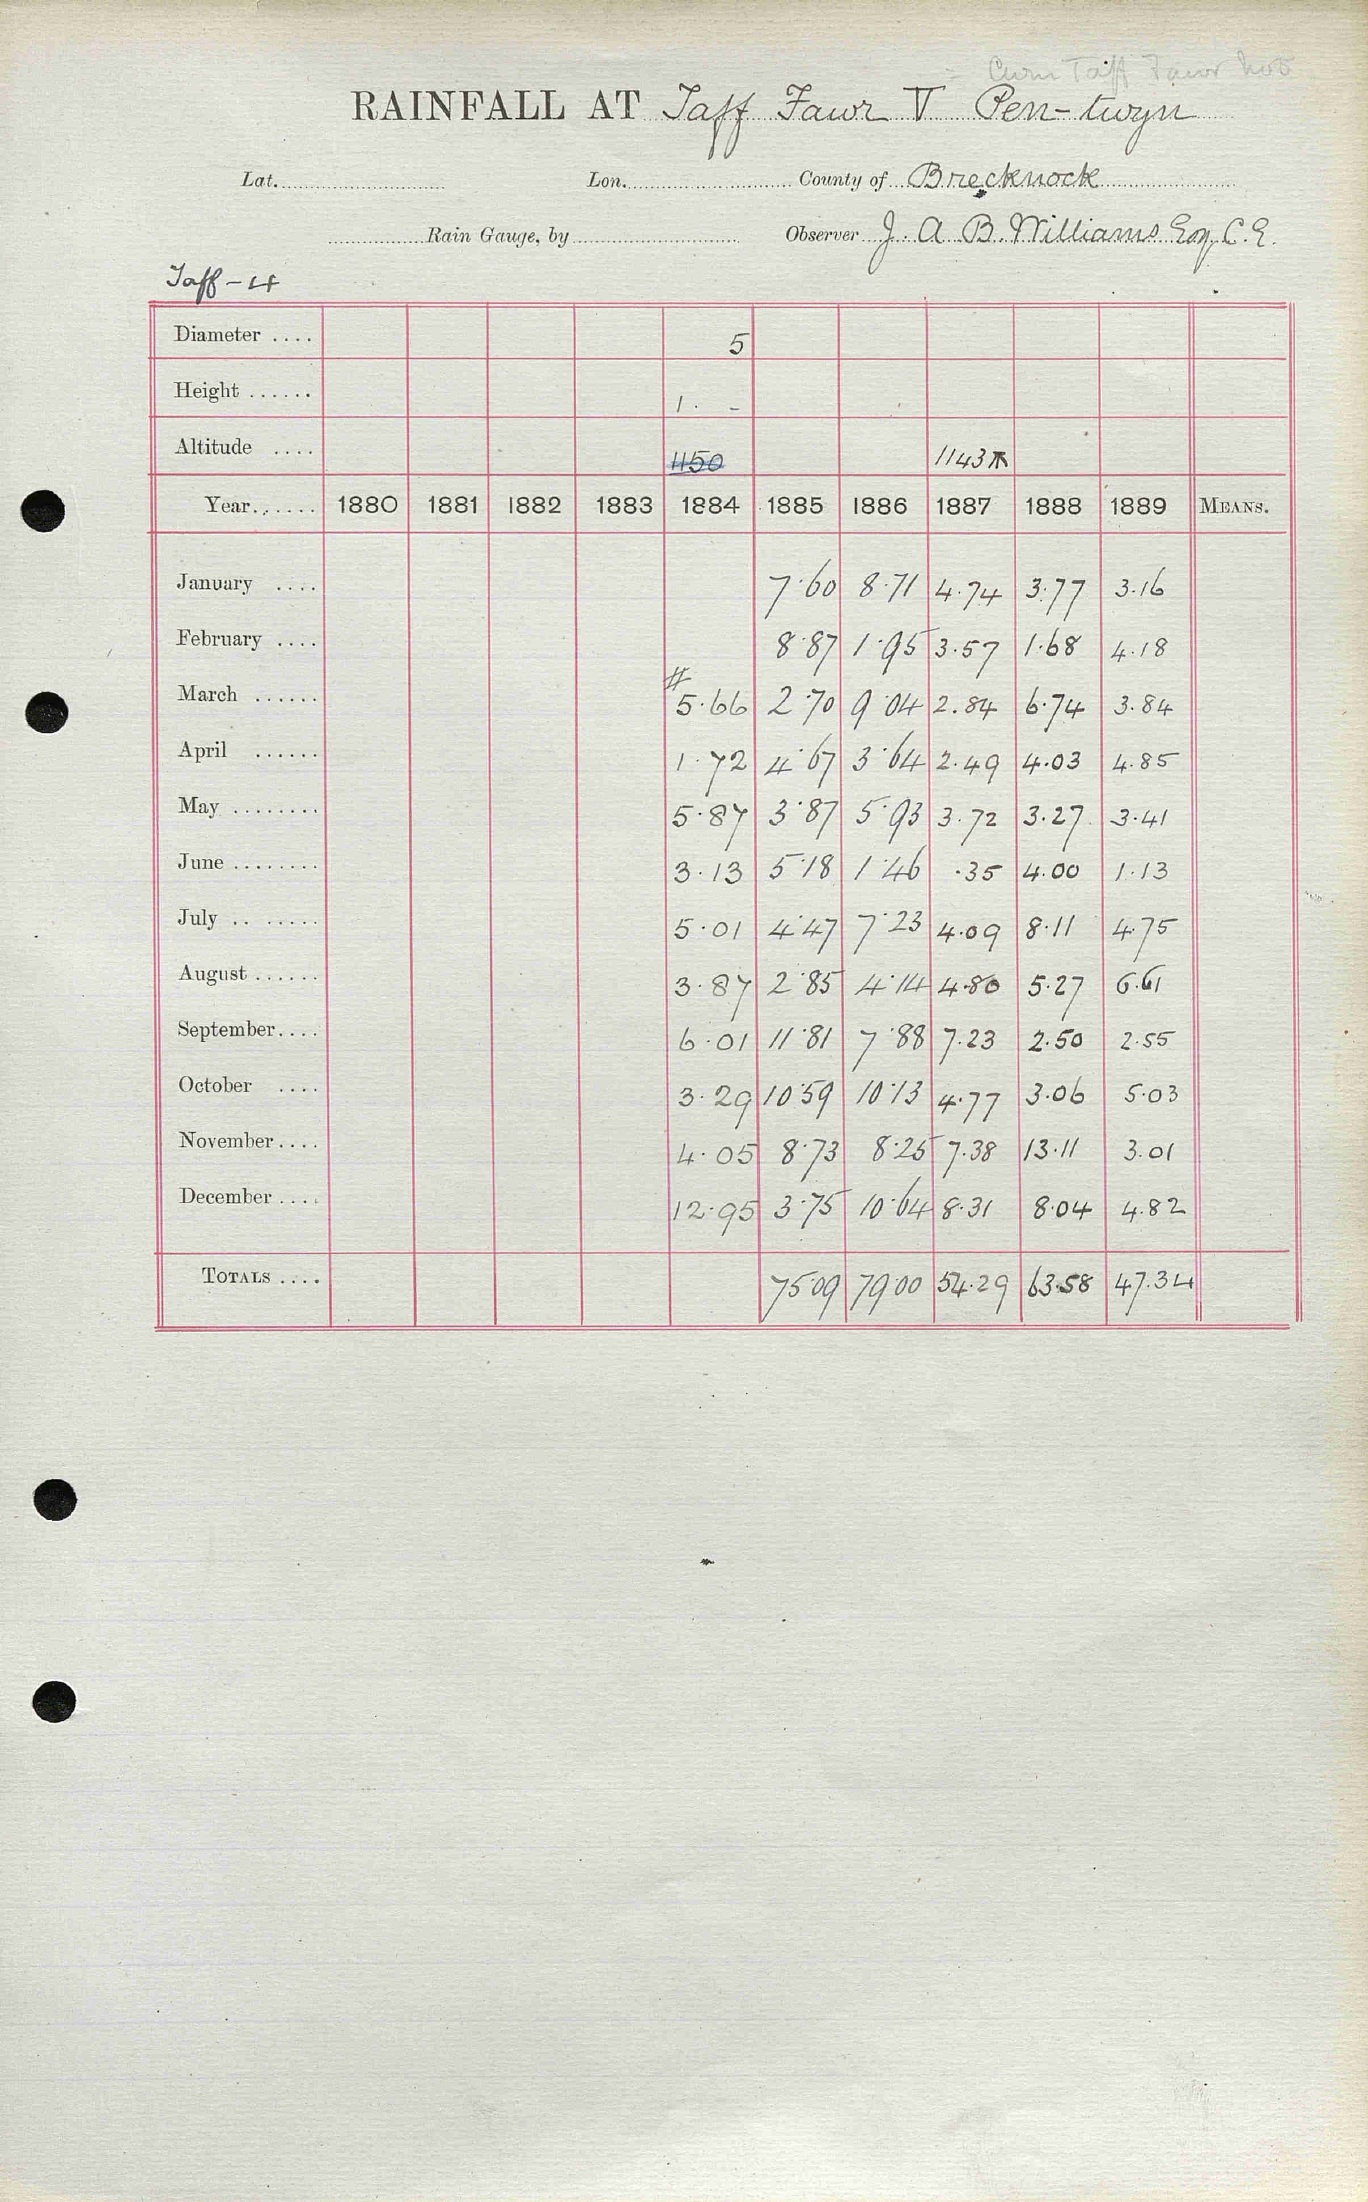 = Cwm Taff Fawr No 5
RAINFALL AT Taff Fawr V Pen-twyn
Lat. Lon. County of Brecknock
Rain Gauge, by Observer J. A. B. Williams Esq, C.E.
Taff-4
Diameter .... 5
Height ...... 1. -
Altitude .... 1150 1143
Year...... 1880 1881 1882 1883 1884 1885 1886 1887 1888 1889 MEANS.
January .... 7.60 8.71 4.74 3.77 3.16
February .... 8.87 1.95 3.57 1.68 4.18
March ...... # 5.66 2.70 9.04 2.84 6.74 3.84
April ...... 1.72 4.67 3.64 2.49 4.03 4.85
May ........ 5.87 3.87 5.93 3.72 3.27 3.41
June ........ 3.13 5.18 1.46 .35 4.00 1.13
July .. ..... 5.01 4.47 7.23 4.09 8.11 4.75
August ...... 3.87 2.85 4.14 4.80 5.27 6.61
September.... 6.01 11.81 7.88 7.23 2.50 2.55
October .... 3.29 10.59 10.13 4.77 3.06 5.03
November.... 4.05 8.73 8.25 7.38 13.11 3.01
December.... 12.95 3.75 10.64 8.31 8.04 4.82
TOTALS .... 75.09 79.00 54.29 63.58 47.34